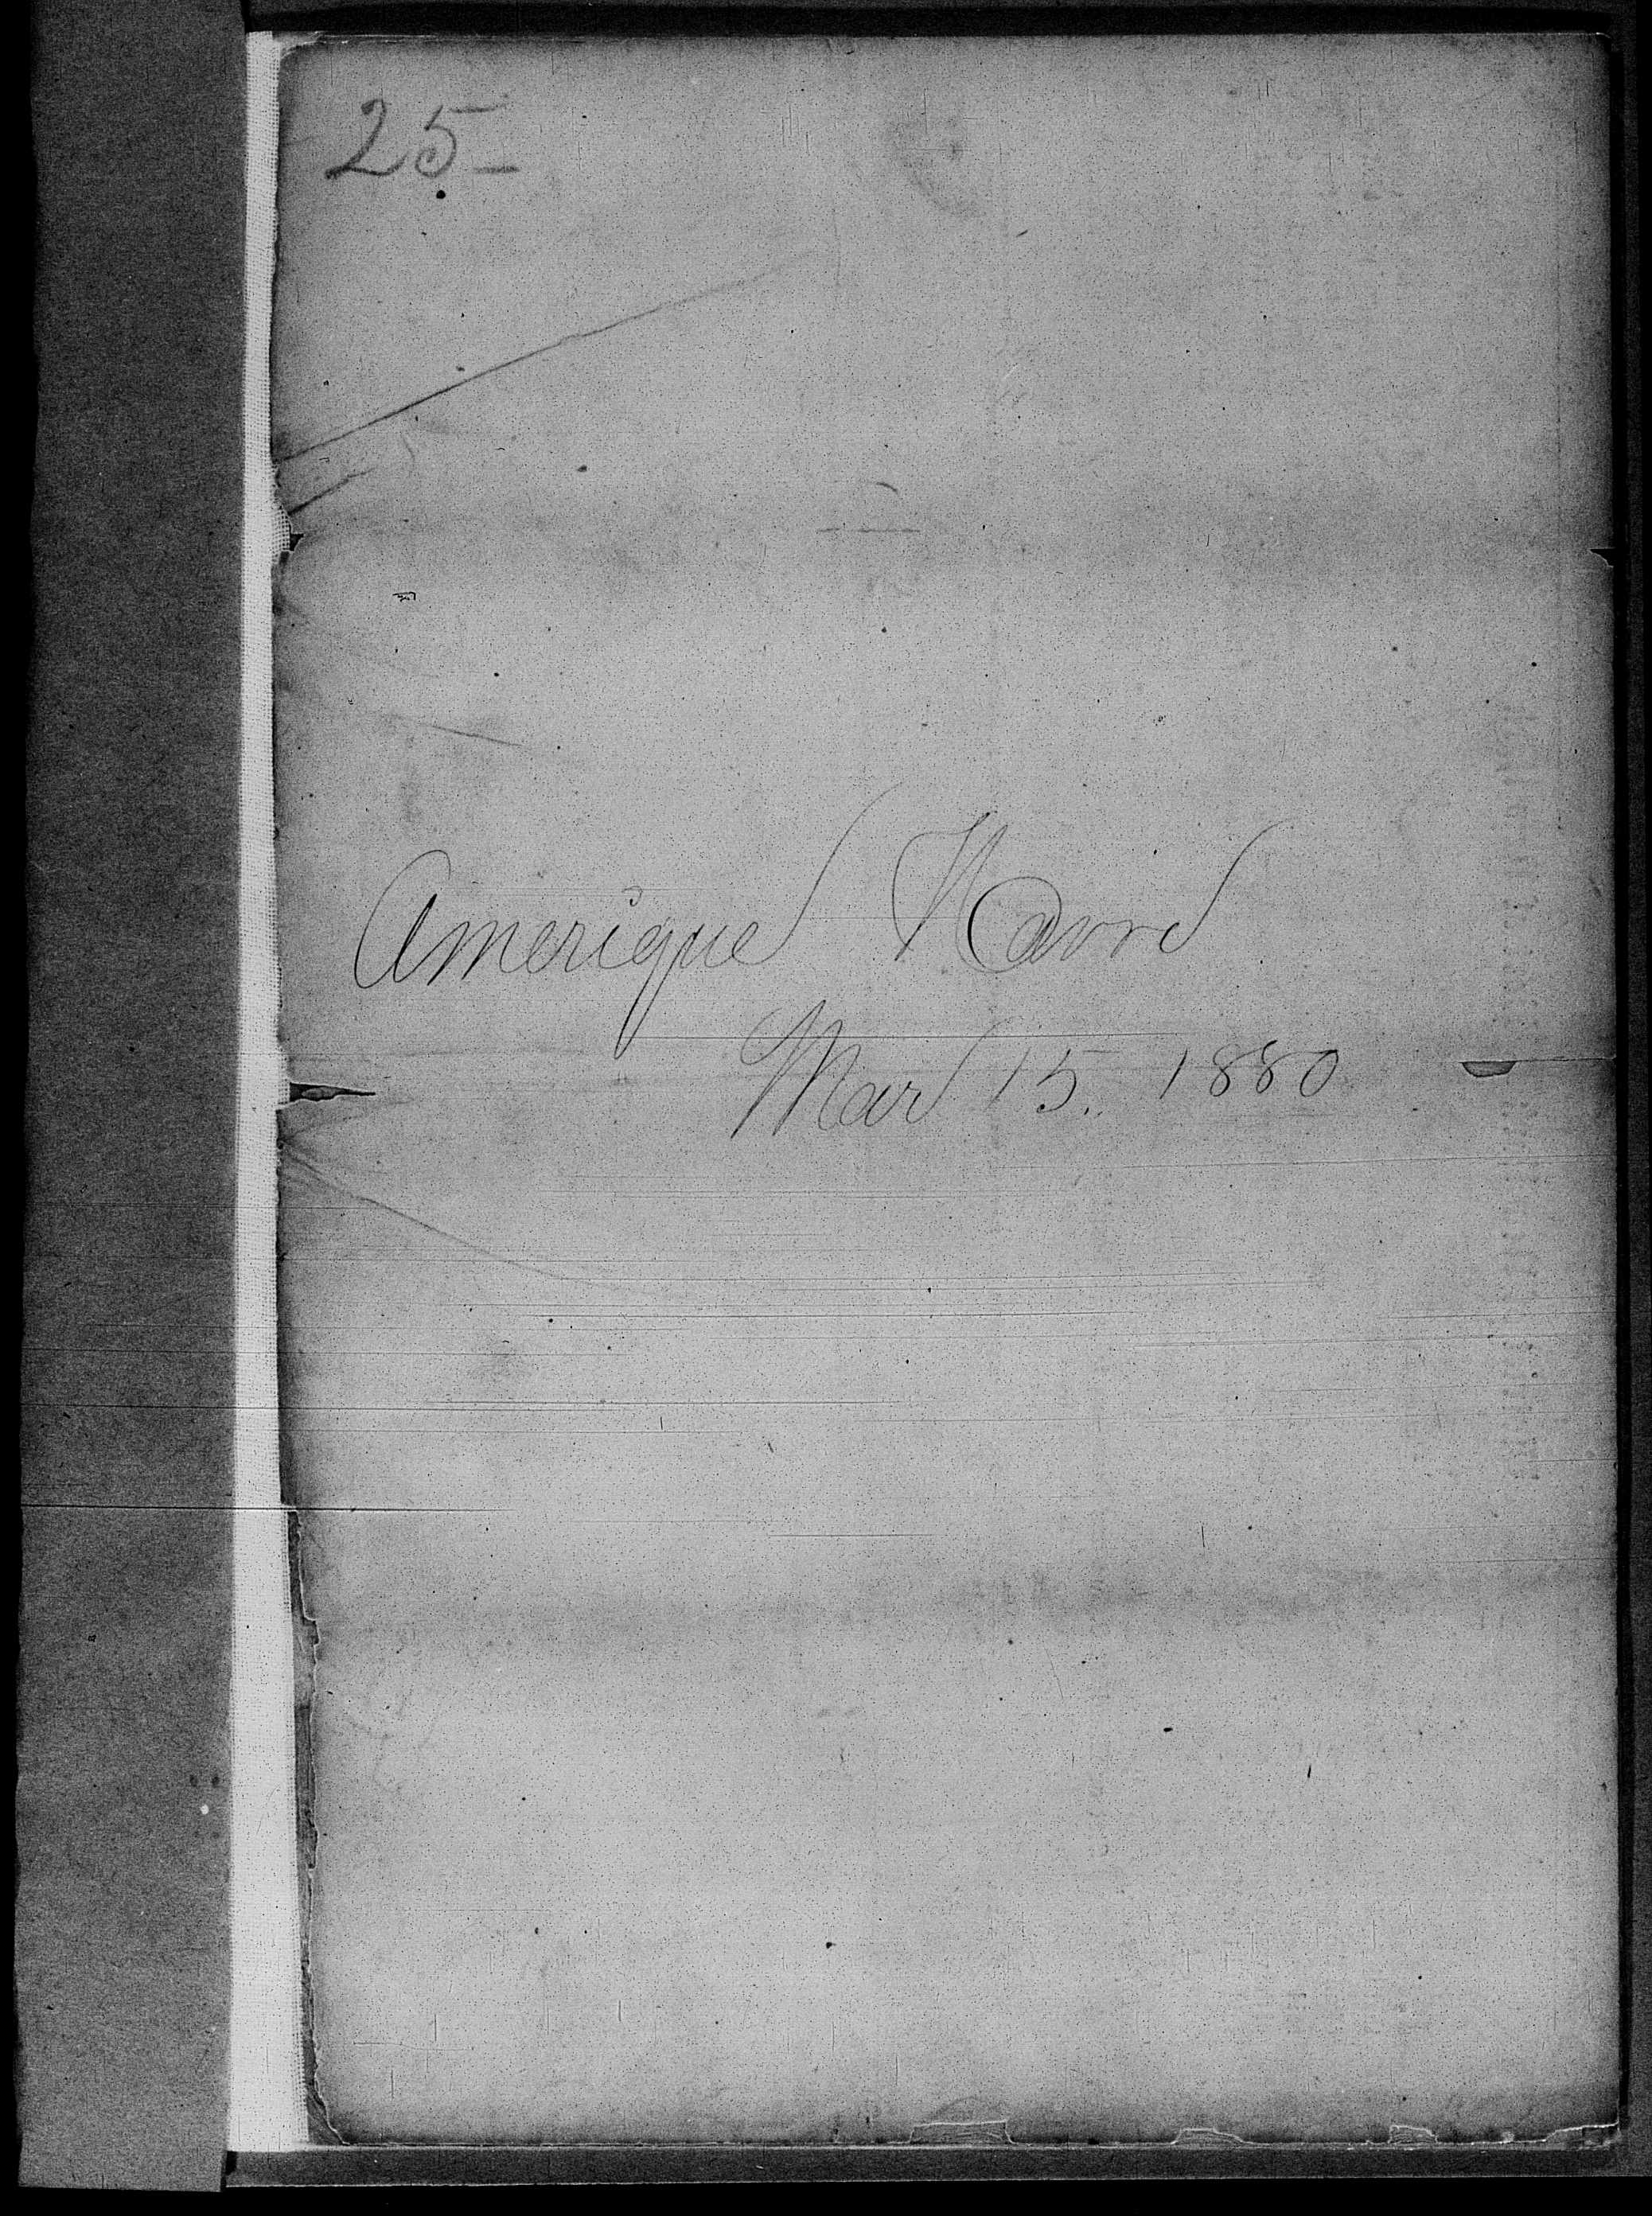 25-
Amerique Havre
Mar 15. 1880